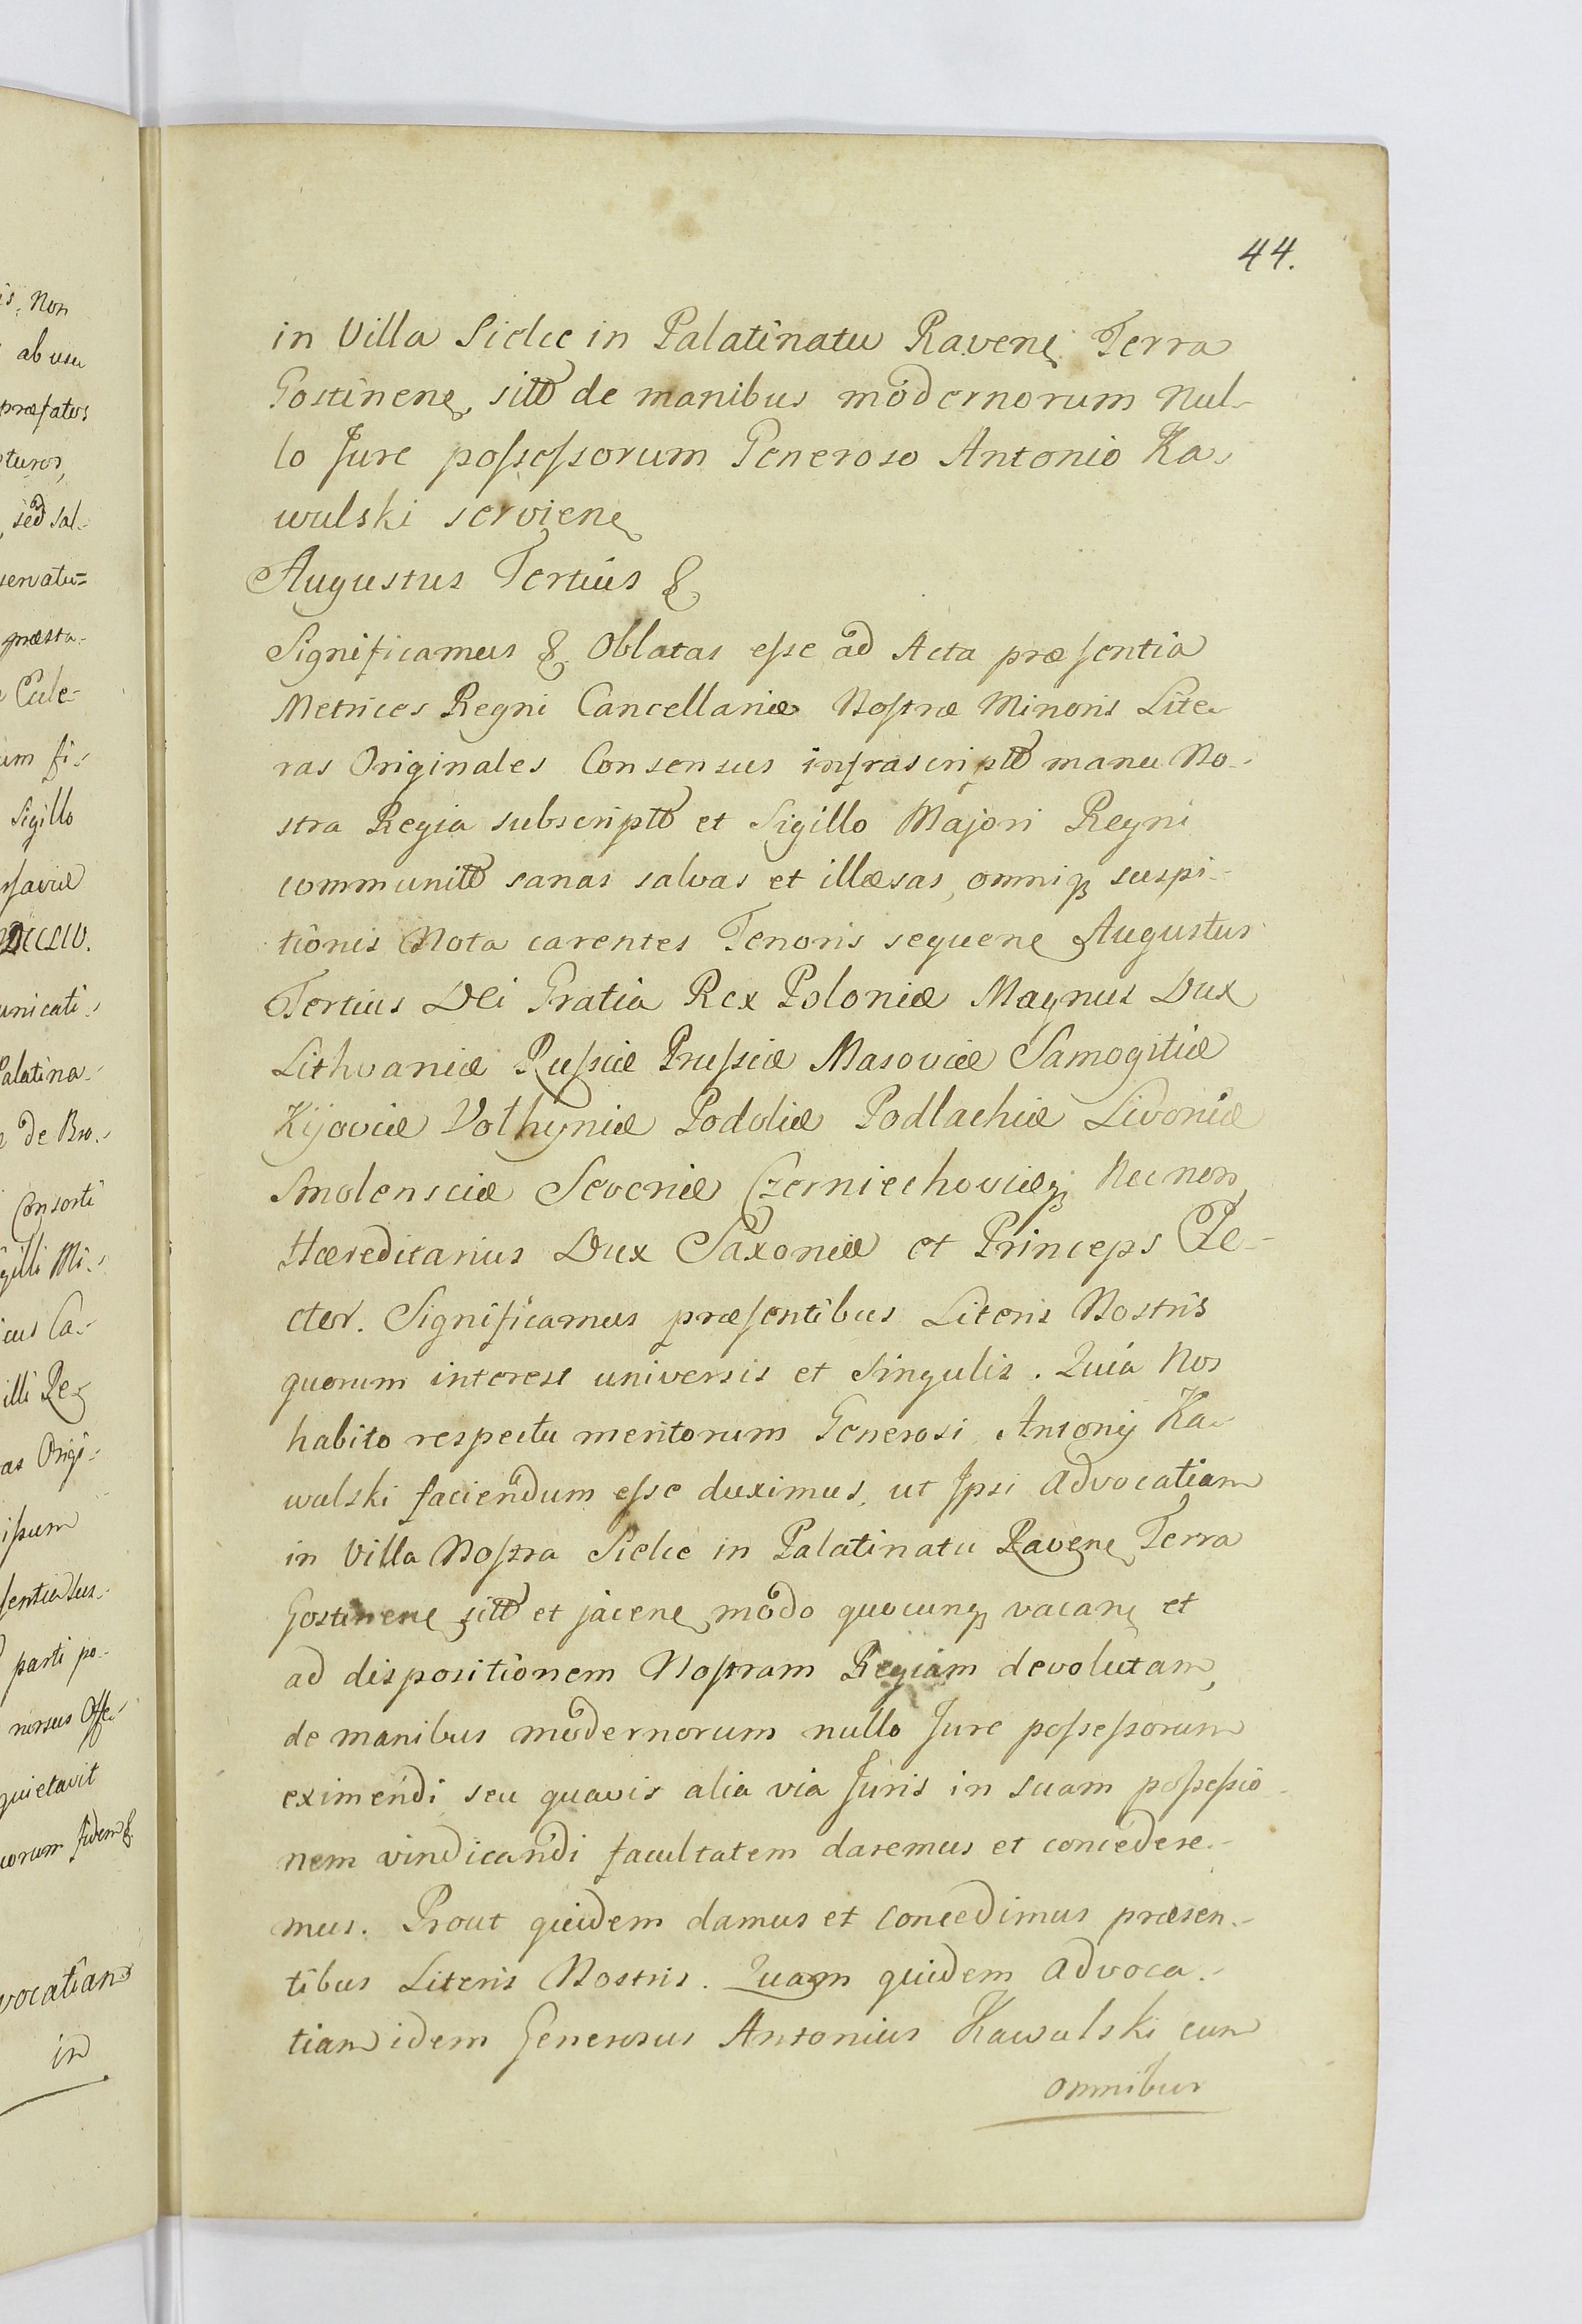 44.
in Villa Sielce in Palatinatu Ravenẽ Terra
Gostinenẽ sittõ de manibus modernorum Nul-
lo Jure poſseſsorum Generoso Antonio Ka-
wulski servienẽ
Augustus Tertius &
Significamus & Oblatas eſse ad Acta præſentia
Metrices Regni Cancellariæ Noſtræ Minoris Lite-
ras Originales Consensus infrascriptõ manu No-
stra Regia subscriptõ et Sigillo Majori Regni
communitõ sanas salvas et illæsas, omniq; suspi-
tionis Nota carentes Tenoris sequenẽ Augustus
Tertius Dei Gratia Rex Poloniæ Magnus Dux
Lithvaniæ Ruſsiæ Pruſsiæ Masoviæ Samogitiæ
Kijoviæ Volhyniæ Podoliæ Podlachiæ Livoniæ
Smolensciæ Severiæ Czerniechoviæq; Necnon
Hæreditarius Dux Saxoniæ et Princeps Ele-
ctor. Significamus præſentibus Literis Nostris
quorum interest universis et singulis. Quia Nos
habito respectu meritorum Generosi Antonij Ka-
wulski faciendum eſse duximus, ut Ipsi Advocatiam
in Villa Noſtra Sielce in Palatinatu Ravenẽ Terra
Gostinenẽ sittõ et jacenẽ modo quocunq; vacanẽ et
ad dispositionem Noſtram Regiam devolutam,
de manibus modernorum nullo Jure poſseſsorum
eximendi seu quavis alia via Juris in suam poſseſsio-
nem vindicandi facultatem daremus et concedere-
mus. Prout quidem damus et concedimus præsen-
tibus Literis Nostris. Quam quidem Advoca-
tiam idem Generosus Antonius Kawulski cum
omnibus